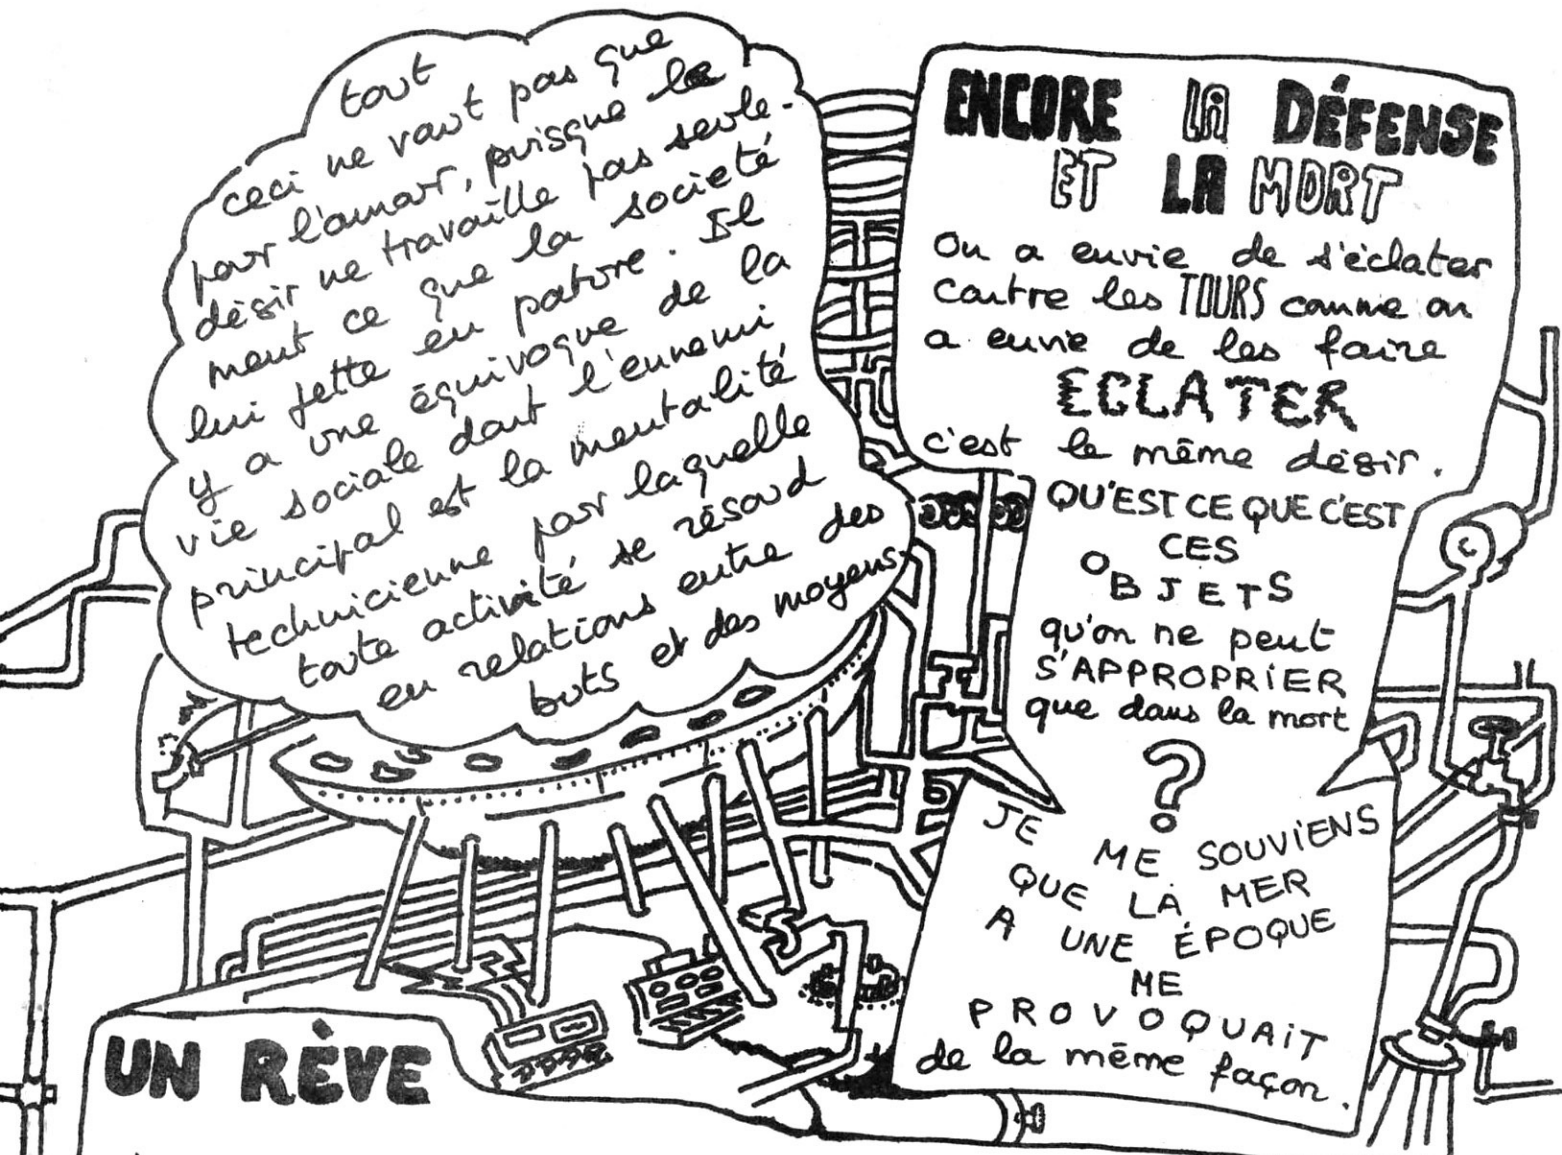 tout
ceci ne vaut pas que
pour l'amour, puisque le
désir ne travaille pas seule-
ment ce que la societé
lui jette en pature. Il
y a une équivoque de la
vie sociale dont l'ennemi
principal est la mentalité
technicienne par laquelle
toute activité se résoud
en relations entre des
buts et des moyens.
ENCORE LA DÉFENSE
ET LA MORT
On a envie de s'éclater
contre les TOURS comme on
a envie de les faire
ECLATER
c'est le même désir.
QU'EST CE QUE C'EST
CES
OBJETS
qu'on ne peut
S'APPROPRIER
que dans la mort
?
JE ME SOUVIENS
QUE LA MER
A UNE ÉPOQUE
ME
PROVOQUAIT
de la même façon.
UN RÈVE